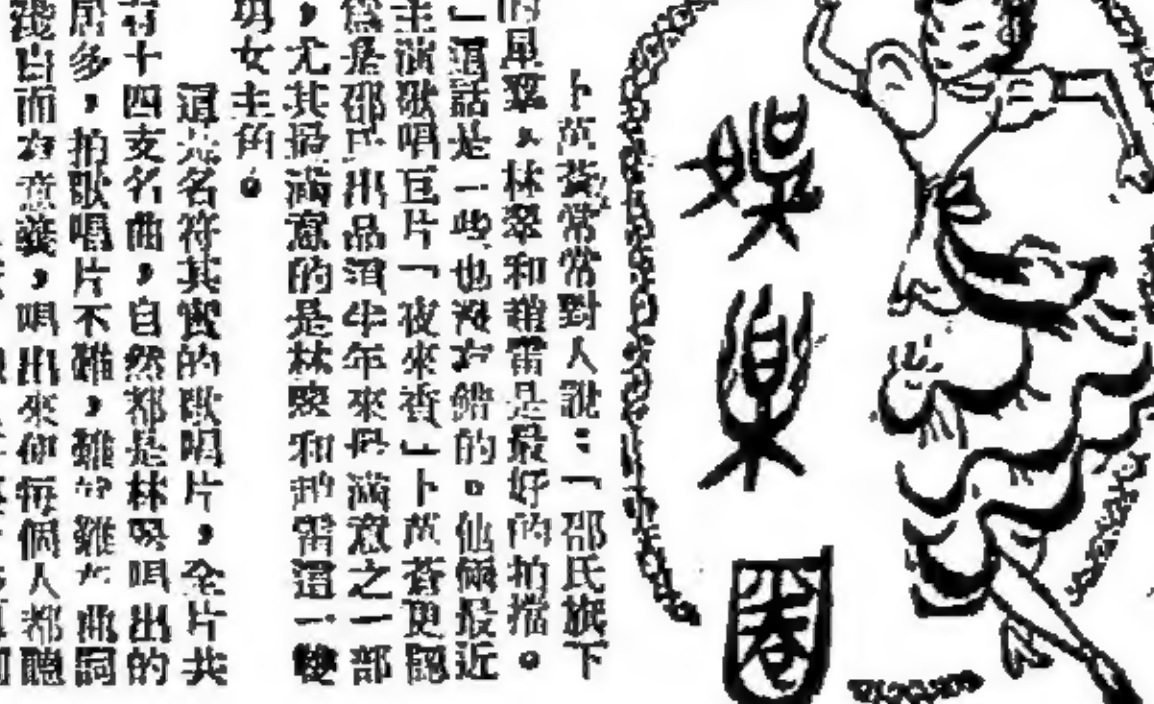 娛樂圈
卜萬蒼常常對人說：「邵氏旗下
的星羣，林翠和趙雷是最好的拍擋。
」這話是一些也沒有錯的。他倆最近
主演歌唱巨片「夜來香」卜萬蒼更認
為是邵氏出品這半年來最滿意之一部
，尤其最滿意的是林翠和趙雷這一雙
男女主角。
這是名符其實的歌唱片，全片共
有十四支名曲，自然都是林翠唱出的
居多，拍歌唱片不難，難卻難在曲詞
淺白而有意義，唱出來使每個人都聽